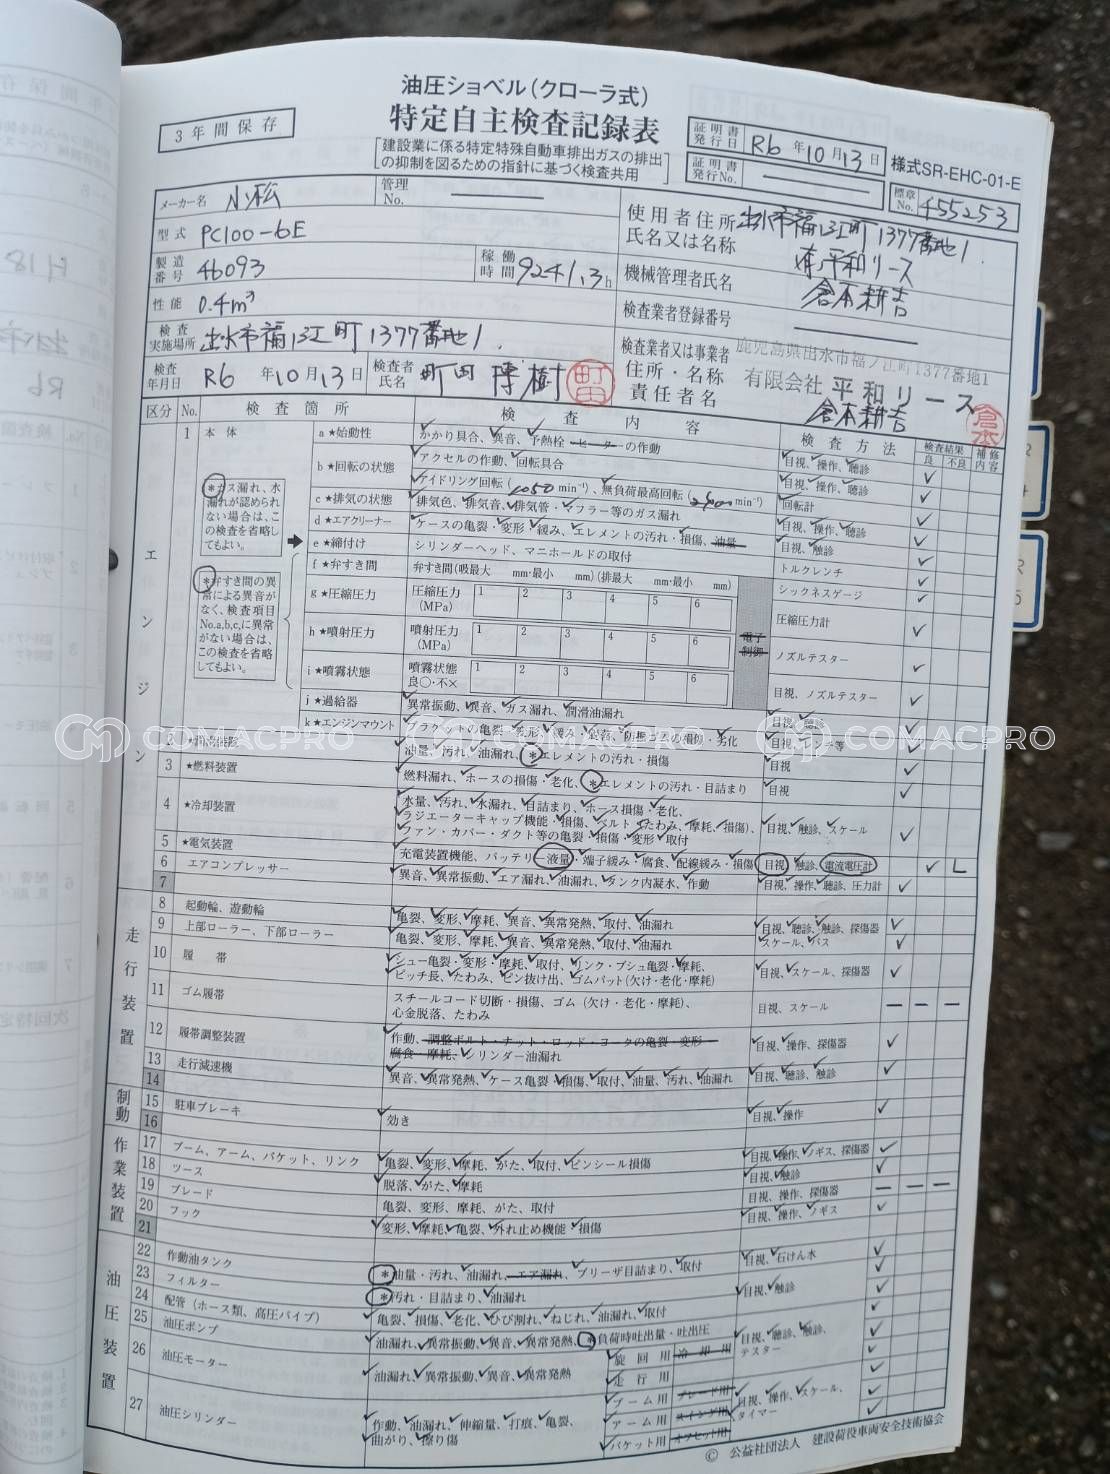 油圧ショベル(クローラ式)
特定自主検査記録表
3年間保存
建設業に係る特定特殊自動車排出ガスの排出
の抑制を図るための指針に基づく検査共用
証明書発行日 R6年10月13日
証明書発行No.
様式SR-EHC-01-E
標章No. 455253
メーカー名 小松
管理No.
型式 PC100-6E
製造番号 46093
稼働時間 9241.3h
性能 0.4m³
検査実施場所 出水市福ノ江町1377番地1.
検査年月日 R6年10月13日
検査者氏名 町田 博樹
町田
使用者住所 出水市福ノ江町1377番地1.
氏名又は名称 平和リース
機械管理者氏名 倉本耕吉
検査業者登録番号
検査業者又は事業者 鹿児島県出水市福ノ江町1377番地1
住所・名称 有限会社 平和リース
責任者名 倉本耕吉
倉本
区分 No. 検査箇所 検査内容 検査方法 検査結果 良 不良 補修内容
エンジン
1 本体
*ガス漏れ、水漏れが認められない場合は、この検査を省略してもよい。
*弁すき間の異常による異音がなく、検査項目No.a,b,c,に異常がない場合は、この検査を省略してもよい。
a ★始動性 かかり具合、異音、予熱栓・ヒーターの作動 目視、操作、聴診
b ★回転の状態 アクセルの作動、回転具合 目視、操作、聴診
アイドリング回転(1050 min⁻¹)、無負荷最高回転( min⁻¹) 回転計
c ★排気の状態 排気色、排気音、排気管・マフラー等のガス漏れ 目視、操作、聴診
d ★エアクリーナー ケースの亀裂・変形、緩み、エレメントの汚れ・損傷、油量 目視、触診
e ★締付け シリンダーヘッド、マニホールドの取付 トルクレンチ
f ★弁すき間 弁すき間(吸最大 mm・最小 mm)(排最大 mm・最小 mm) シックネスゲージ
g ★圧縮圧力 圧縮圧力(MPa) 1 2 3 4 5 6 圧縮圧力計
h ★噴射圧力 噴射圧力(MPa) 1 2 3 4 5 6 電子制御 ノズルテスター
i ★噴霧状態 噴霧状態 良○・不× 1 2 3 4 5 6 目視、ノズルテスター
j ★過給器 異常振動、異音、ガス漏れ、潤滑油漏れ 目視、聴診
k ★エンジンマウント ブラケットの亀裂、変形、緩み、防振ゴムの損傷・劣化
COMACPRO COMACPRO COMACPRO
2 油量、汚れ、油漏れ、*エレメントの汚れ・損傷 目視
3 ★燃料装置 燃料漏れ、ホースの損傷・老化、*エレメントの汚れ・目詰まり 目視
4 ★冷却装置 水量、汚れ、水漏れ、目詰まり、ホース損傷・老化、
ラジエーターキャップ機能・損傷、ベルト(たわみ、摩耗、損傷)、
ファン・カバー・ダクト等の亀裂・損傷・変形・取付 目視、触診、スケール
5 ★電気装置 充電装置機能、バッテリー液量・端子緩み・腐食、配線緩み・損傷 目視、触診、電流電圧計 L
6 エアコンプレッサー 異音、異常振動、エア漏れ、油漏れ、タンク内凝水、作動 目視、操作、聴診、圧力計
7
走行装置
8 起動輪、遊動輪 亀裂、変形、摩耗、異音、異常発熱、取付、油漏れ 目視、聴診、触診、探傷器
9 上部ローラー、下部ローラー 亀裂、変形、摩耗、異音、異常発熱、取付、油漏れ スケール、パス
10 履帯 シュー亀裂・変形・摩耗、取付、リンク・ブシュ亀裂・摩耗、
ピッチ長、たわみ、ピン抜け出、ゴムパット(欠け・老化・摩耗) 目視、スケール、探傷器
11 ゴム履帯 スチールコード切断・損傷、ゴム(欠け・老化・摩耗)、
心金脱落、たわみ 目視、スケール
12 履帯調整装置 作動、調整ボルト・ナット・ロッド・ヨークの亀裂・変形
腐食・摩耗、シリンダー油漏れ 目視、操作、探傷器
13 走行減速機 異音、異常発熱、ケース亀裂・損傷、取付、油量、汚れ、油漏れ 目視、聴診、触診
14
制動
15 駐車ブレーキ 効き 目視、操作
16
作業装置
17 ブーム、アーム、バケット、リンク 亀裂、変形、摩耗、がた、取付、ピンシール損傷 目視、操作、ノギス、探傷器
18 ツース 脱落、がた、摩耗 目視、触診
19 ブレード 亀裂、変形、摩耗、がた、取付 目視、操作、探傷器
20 フック 変形、摩耗、亀裂、外れ止め機能・損傷 目視、操作、ノギス
21
油圧装置
22 作動油タンク *油量・汚れ、油漏れ、エア漏れ、ブリーザ目詰まり、取付 目視、石けん水
23 フィルター *汚れ・目詰まり、油漏れ
24 配管(ホース類、高圧パイプ) 亀裂、損傷、老化、ひび割れ、ねじれ、油漏れ、取付 目視、触診
25 油圧ポンプ 油漏れ、異常振動、異音、異常発熱、*負荷時吐出量・吐出圧 目視、聴診、触診、テスター
26 油圧モーター 油漏れ、異常振動、異音、異常発熱 旋回用 冷却用
走行用
27 油圧シリンダー 作動、油漏れ、伸縮量、打痕、亀裂、
曲がり、擦り傷 ブーム用 ブレード用
アーム用 スイング用
バケット用 オフセット用 目視、操作、スケール、タイマー
© 公益社団法人 建設荷役車両安全技術協会